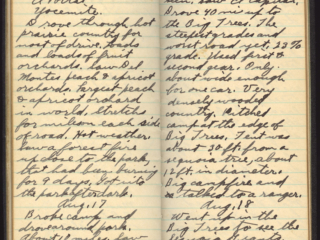 Yosemite.
Drove through hot
prairie country for
most of drive. Loads
and loads of fruit
orchards. Saw Del
Montes peach & apricot
orchards, largest peach
& apricot orchard
in world, stretches
for miles on each side
of road. Hot weather.
Saw a forest fire
up close to the park,
that had been burning
for 9 days. Got into
the park after dark.
Aug. 17
Broke camp and
drove around park.
Drove 40 miles to
the Big Trees. The
steepest grades and
worst road yet, 22%
grade. Used first &
second gear. Only
about wide enough
for one car. Very
densely wooded
country. Pitched
camp at the edge of
Big Trees. Tent was
about 30 ft. from a
sequoia tree, about
12 ft. in diameter.
Big campfire and
talked to a ranger.
Aug. 18
Went up in the
Big Trees to see the